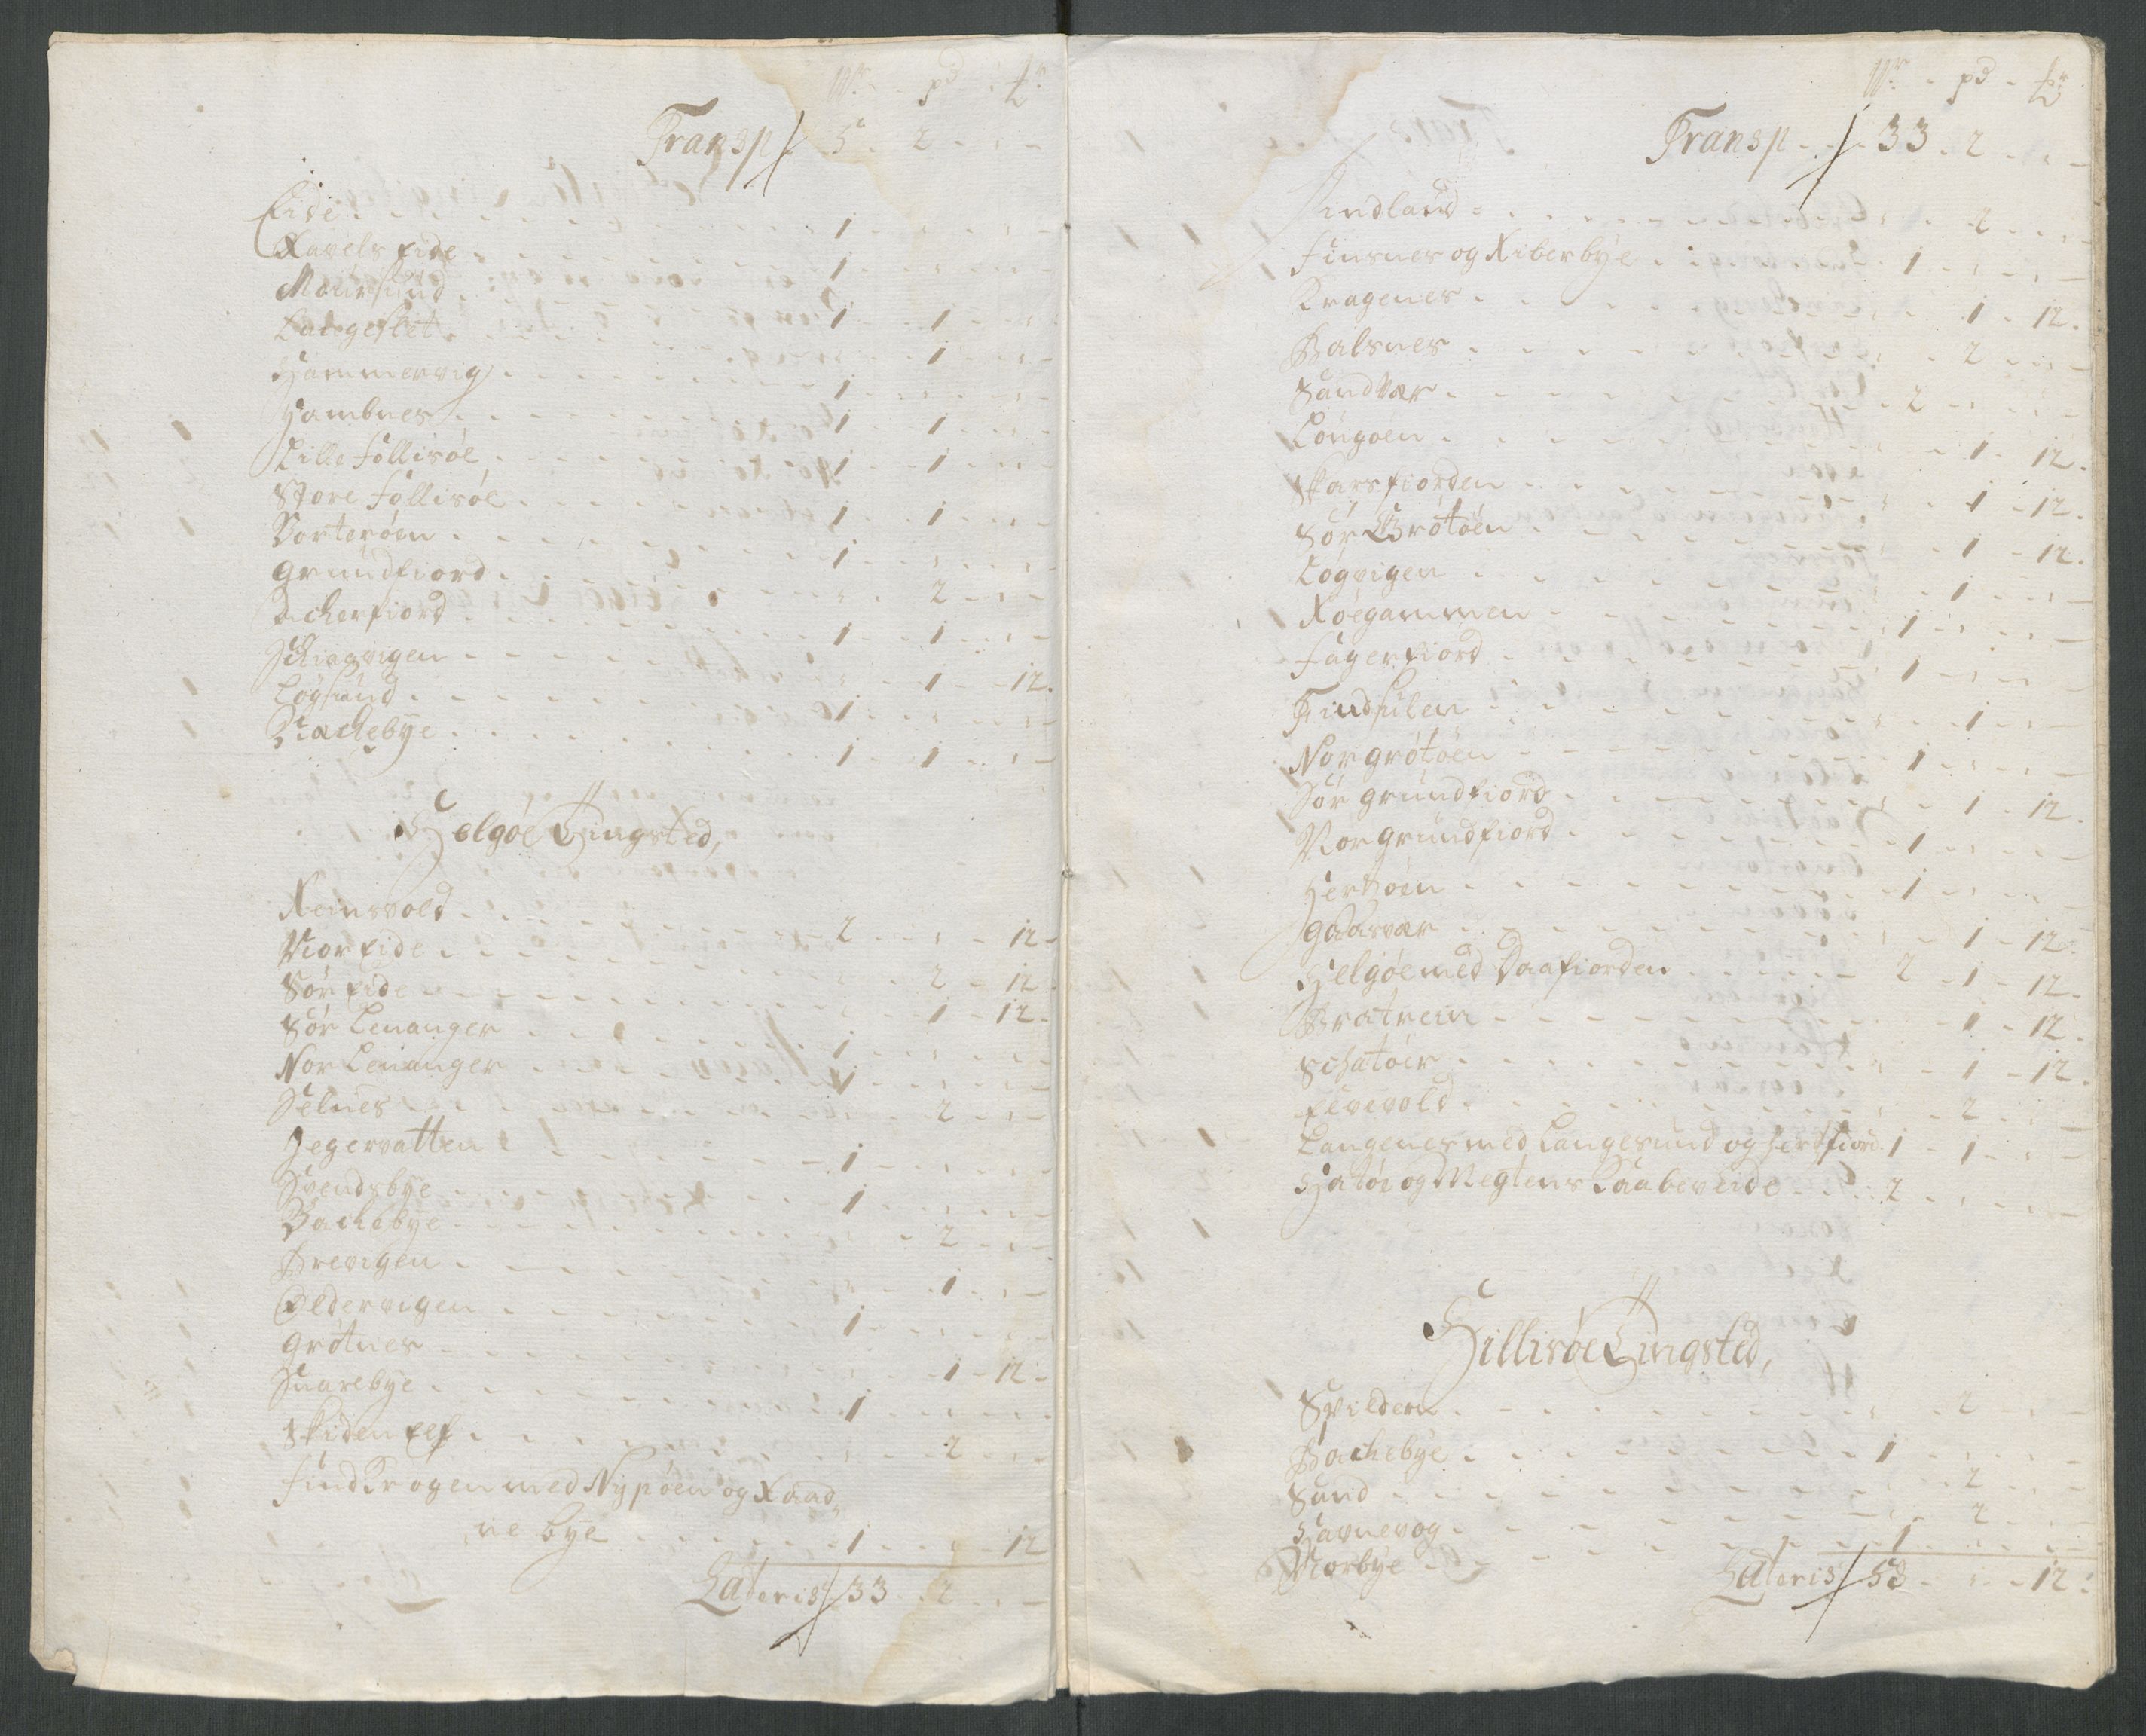 pd
Transp 5 2
Eide 1
Ravels Eide 1
Maursund 1 1
Langeslet 1
Hammervig 1
Hambnes 1 1
Lille Follisøe 1 1
Store Follisøe 1 1
Vorterøen 1
Grundfiord 2
Acherfiord 1 1
Schiagvigen 1 12
Løgsund 1
Stachebye 1 1
Helgøe Tingsted,
Reinsvold 2 12
Nor Eide 2 12
Sør Eide 1 12
Sør Lenanger 1
Nor Lenanger 1
Selnes 2
Jegervatten 1
Svendsbye 1
Bachebye 2
Brevigen 1
Oldervigen 1
Grøtnes 1 12
Snarebye 1
Skiden Elf 2
Find Krogen med Nypøen og Raad
ne bye 1 12
Lateris 33 2
pd
Transp 33 2
indland 2
Finsnes og Riberbye 1
Kragenes 1 12
Balsnes 2
Sandvær 2
Løngøen 1 12
Skarsfiorden 1 12
Sør Grøtøen 1 12
Løgvigen 1
Røegammen 1
Fagerfiord 1
Findhulen 1
Nor grøtøen 1
Sør grundfiord 1 12
Nor grundfiord 1
Hersøen 1
Gaasvær 1 12
Helgøe med Daafiorden 2 1 12
Bratrein 1 12
Schatøer 1 12
Elvevold 2
Langenes med Langesund og herfiord 1 1
Hatøi og Meglens Laabereide 2
Hillisøe Tingsted,
Svildern 2
Bachebye 1
Sund 2
Havnevog 2
Norbye 1
Lateris 53 12